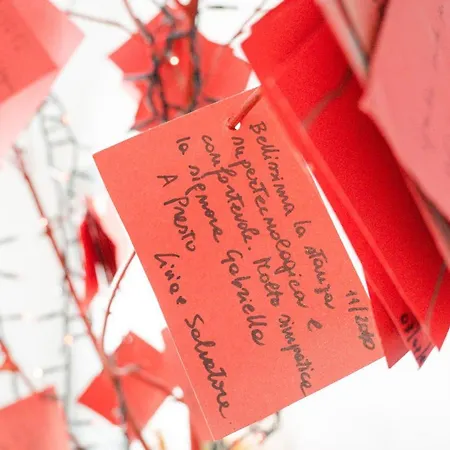 11/2020
Bellissima la stanza
supertecnologica e
confortevole. Molto simpatica
la signora Gabriella
A Presto
Livia e Salvatore